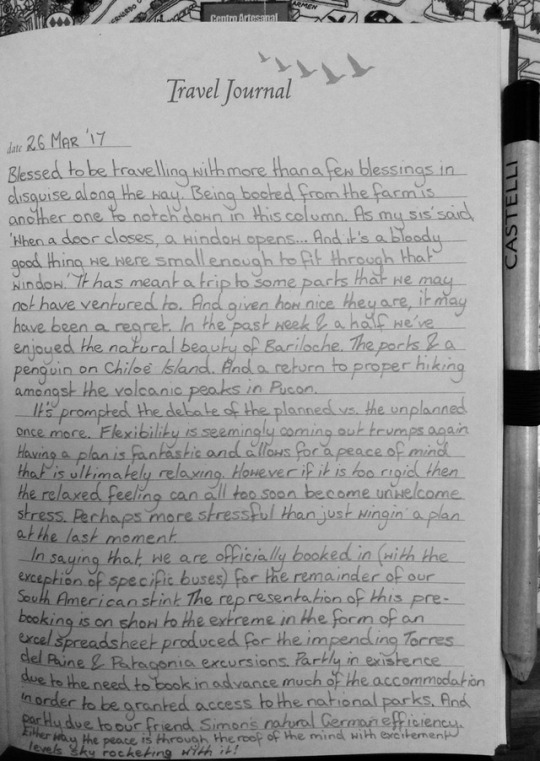 Centro Artesanal
CARMEN
Travel Journal
date 26 MAR '17
Blessed to be travelling with more than a few blessings in
disguise along the way. Being booted from the farm is
another one to notch down in this column. As my sis' said,
'When a door closes, a window opens... And it's a bloody
good thing we were small enough to fit through that
window.' It has meant a trip to some parts that we may
not have ventured to. And given how nice they are, it may
have been a regret. In the past week & a half we've
enjoyed the natural beauty of Bariloche. The ports & a
penguin on Chiloé Island. And a return to proper hiking
amongst the volcanic peaks in Pucon.
It's prompted the debate of the planned vs. the unplanned
once more. Flexibility is seemingly coming out trumps again
Having a plan is fantastic and allows for a peace of mind
that is ultimately relaxing. However if it is too rigid then
the relaxed feeling can all too soon become unwelcome
stress. Perhaps more stressful than just wingin' a plan
at the last moment.
In saying that, we are officially booked in (with the
exception of specific buses) for the remainder of our
South American stint. The representation of this pre-
booking is on show to the extreme in the form of an
excel spreadsheet produced for the impending Torres
del Paine & Patagonia excursions. Partly in existence
due to the need to book in advance much of the accommodation
in order to be granted access to the national parks. And
partly due to our friend Simon's natural German efficiency.
Either way the peace is through the roof of the mind with excitement
levels sky rocketing with it!
CASTELLI